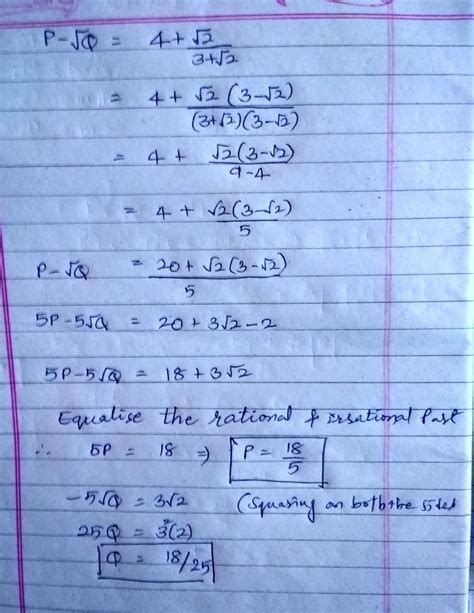 P-√Q = 4 + √2/(3+√2)
= 4 + √2 (3-√2)/(3+√2)(3-√2)
= 4 + √2(3-√2)/9-4
= 4 + √2(3-√2)/5
P-√Q = 20 + √2(3-√2)/5
5P-5√Q = 20 + 3√2 - 2
5P-5√Q = 18 + 3√2
Equalise the rational & irrational Part
∴ 5P = 18 ⇒ P = 18/5
-5√Q = 3√2 (Squaring on both the sides
25Q = 3²(2)
Q = 18/25